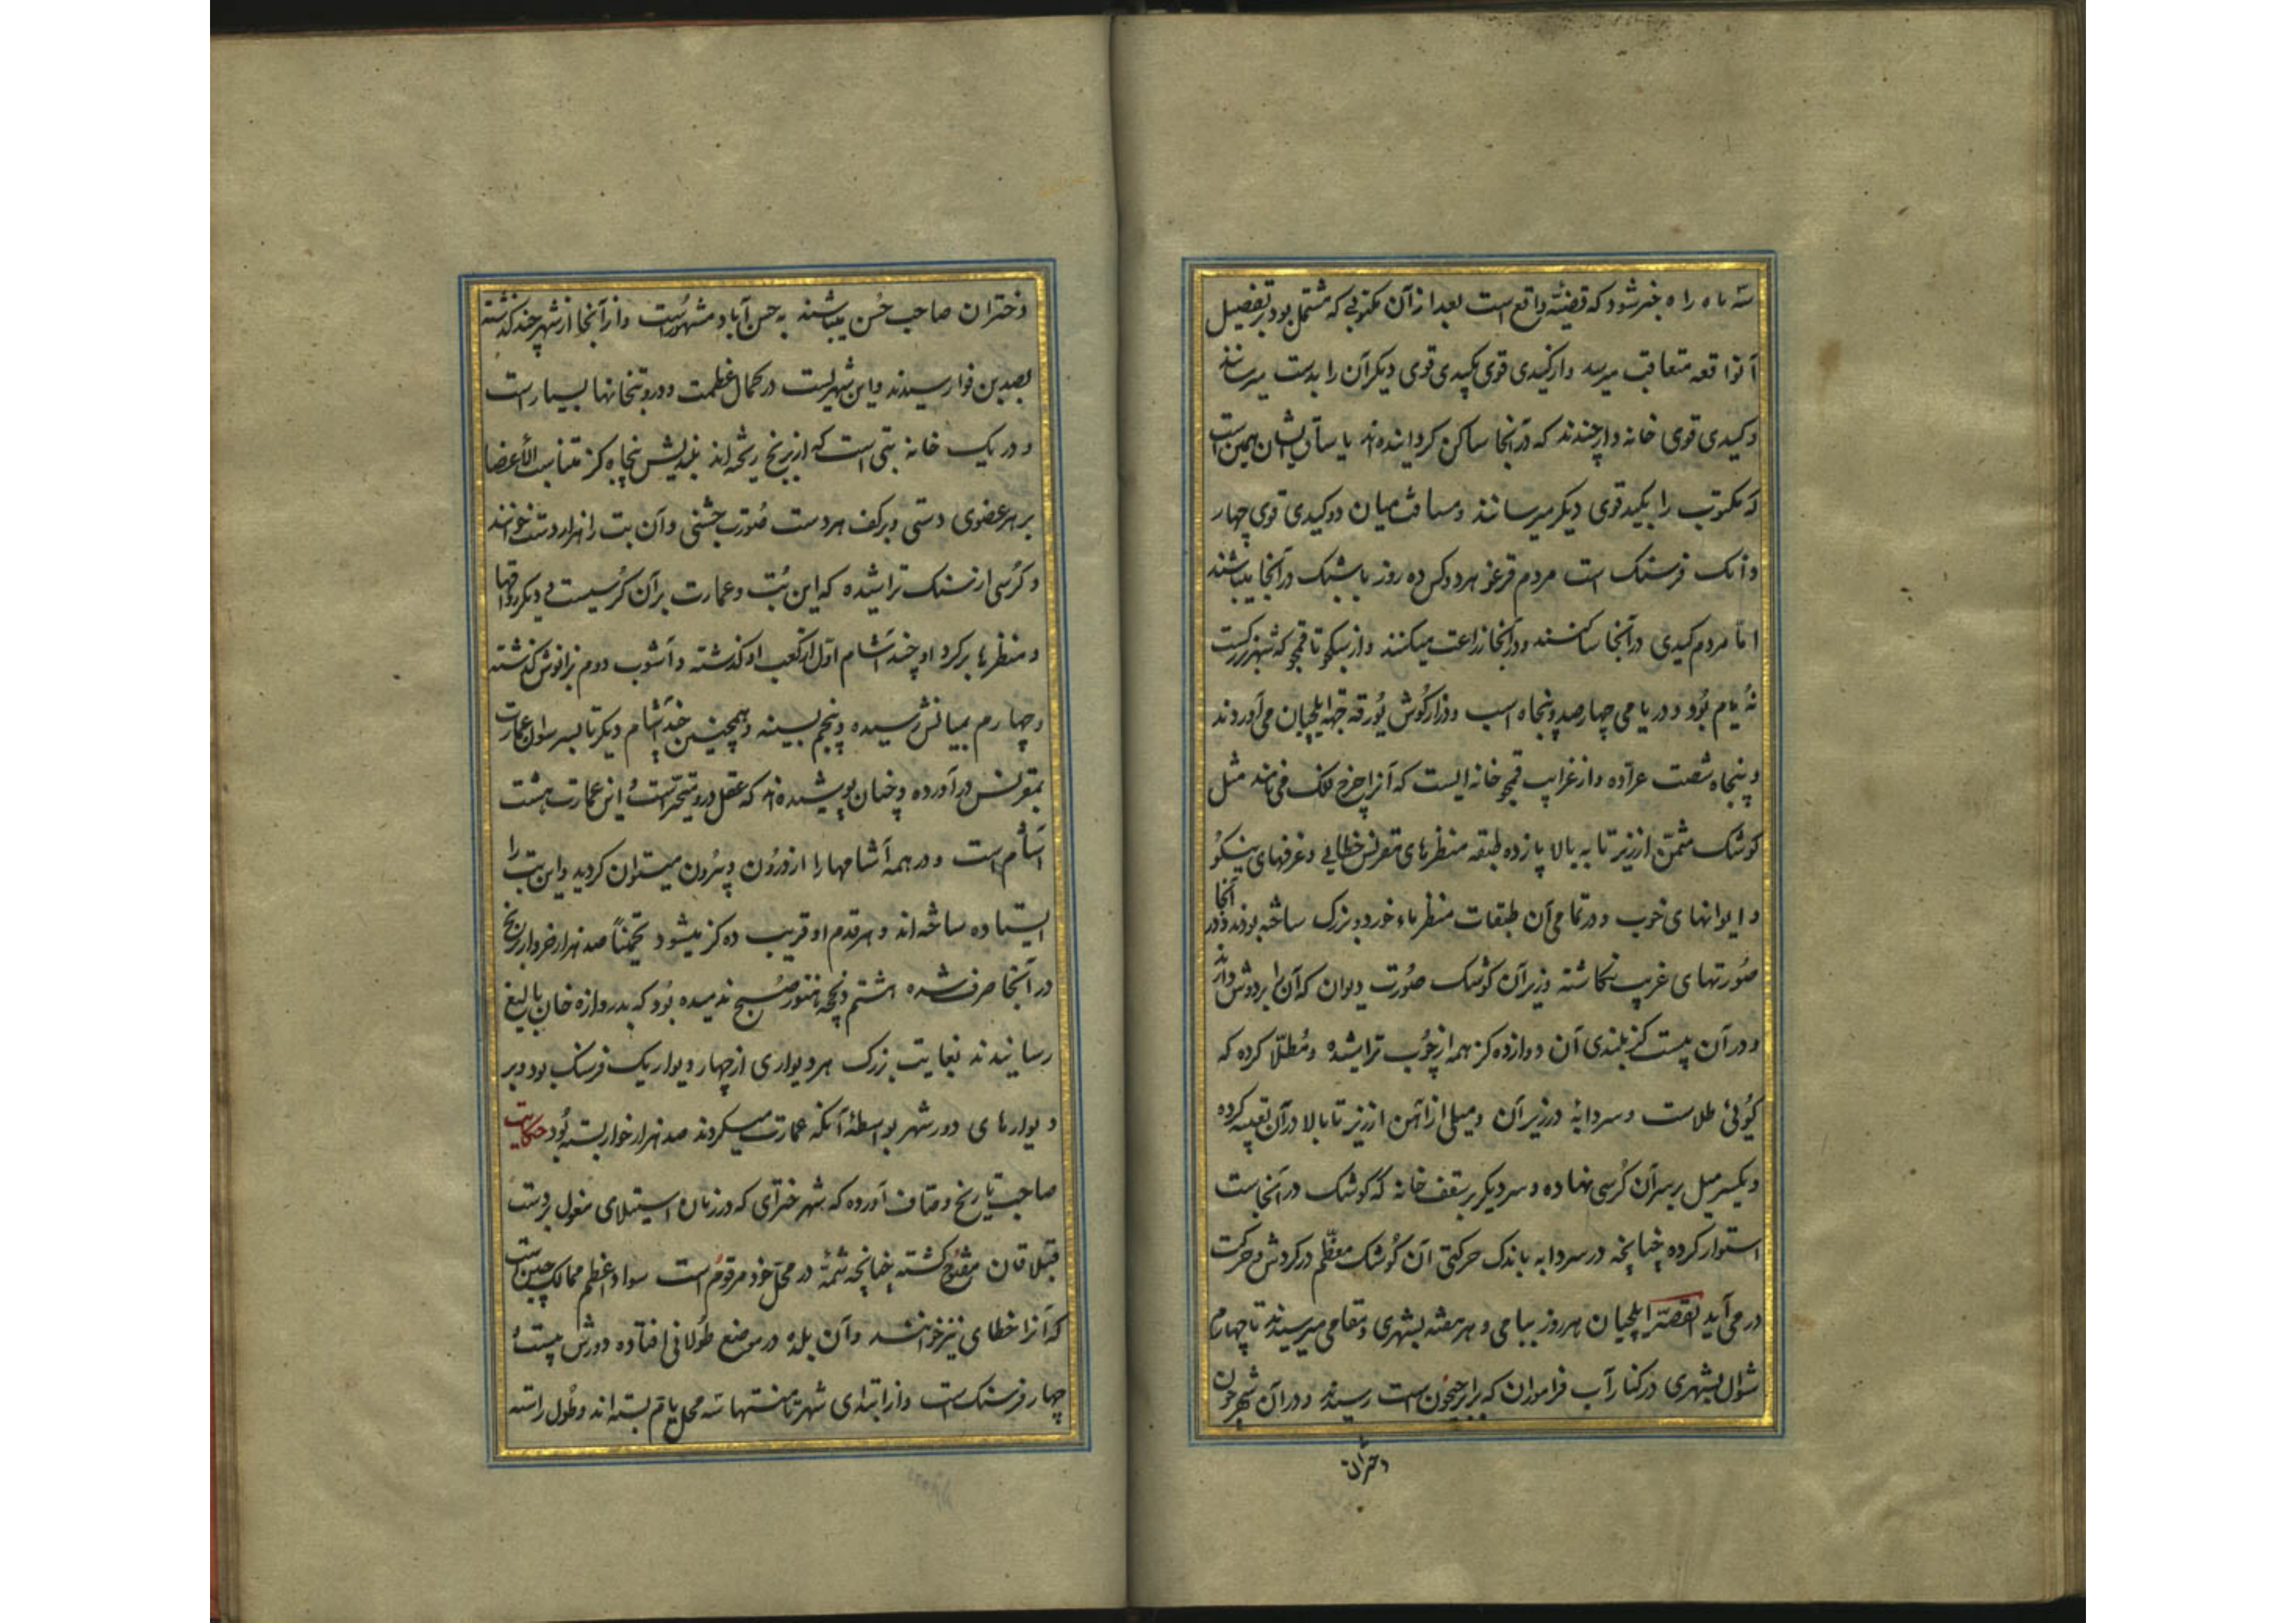 سه ماه راه خبر شود که قضیهٔ واقع است بعد از آن مکتوبی که مشتمل بود بر تفصیل
آنواقعه متعاقب میرسد و از کیدی قوی بکیدی قوی دیکر آن را بدست میرسانند
و کیدی قوی خانه وار چندند که در آنجا ساکن کردانیده‌اند یاساق ایشان همین است
که مکتوب را بکید قوی دیکر میرسانند و مسافت میان دو کیدی قوی چهار
دانک فرسنک است مردم قرغو هر دو کس ده روز باشنک در آنجا میباشند
اما مردم کیدی در آنجا ساکنند و در آنجا زراعت میکنند و از سکجو تا قمجو که شهر بزرکست
نه یام بود و در یامی چهارصد و پنجاه اسب و درازکوش یورقه جهة ایلچیان می‌آوردند
و پنجاه شصت عراده و از غرایب قمجو خانه ایست که آنرا چرخ فلک می‌نامند مثل
کوشک مثمن از زیر تا به بالا پازده طبقه منظرهای مقرنس خطایی و غرفهای نیکو
و ایوانهای خوب و در تمامی آن طبقات منظرهاء خورد و بزرک ساخته بودند و در آنجا
صورتهای غریب نکاشته و زیر آن کوشک صورت دیوان که آنرا بر دوش دارند
و در آن بیست کز بلندی آن دوازده کز همه از چوب تراشیده و مطلّا کرده که
کوئی طلاست و سردابه در زیر آن و میلی از آهن از زیر تا بالا در آن تعبیه کرده
و یکسر میل بر سر آن کرسی نهاده و سر دیکر بر سقف خانه که کوشک در آنجاست
استوار کرده چنانچه در سردابه باندک حرکتی آن کوشک معظم در کردش و حرکت
در می‌آید القصه ایلچیان هر روز بیامی و هر هفته بشهری و مقامی میرسیدند تا چهارم
شوال بشهری در کنار آب قراموران که برابر جیحون است رسیدند و در آن شهر چون
دختران
دختران صاحب حسن میباشند به حسن آباد مشهورست و از آنجا از شهر چند کذشته
بصدین فوا رسیدند و این شهریست در کمال عظمت و در و بتخانها بسیار است
و در یک خانه بتی است که از برنج ریخته‌اند بلندیش پنجاه کز متناسب الأعضا
بر هر عضوی دستی و بر کف هر دست صورت چشمی و آن بت را هزار دست خوانند
و کرسی از سنک تراشیده که این بت و عمارت بر آن کرسیست و دیکر رواقها
و منظرها بر کرد او چند آشام اول از کعب او کذشته و آشوب دوم بزانوش کذشته
و چهارم بمیانش رسیده و پنجم بسینه و همچنین چند آشام دیکر تا بسر سوان عمارت
بمقرنس در آورده و چنان پوشیده‌اند که عقل درو متحیرست و این عمارت هشت
آشام است و در همه آشامها را از درون و بیرون میتوان کردید و این بت را
ایستاده ساخته‌اند و هر قدم او قریب ده کز میشود تخمیناً صد هزار خروار برنج
در آنجا صرف شده هشتم ذیحجه هنوز صبح ندمیده بود که بدروازه خان بالیغ
رسانیدند بغایت بزرک هر دیواری از چهار دیوار یک فرسنک بود و بر
دیوارهای دور شهر بواسطهٔ آنکه عمارت میکردند صد هزار خوار بسته بود حکایت
صاحب تاریخ وصاف آورده که شهر خنزای که در زمان استیلای مغول بر دست
قبلا قاان مفتوح کشته چنانچه شمهٔ در محل خود مرقوم است سواد اعظم ممالک چین است
که آنرا خطای نیز خوانند و آن بلده در موضع طولانی افتاده دورش بیست و
چهار فرسنک است و از ابتدای شهر تا منتها سه محل یام بسته‌اند و طول راسته